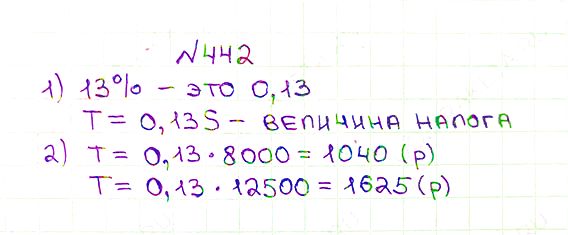 №442
1) 13% – ЭТО 0,13
T = 0,13S – ВЕЛИЧИНА НАЛОГА
2) T = 0,13 · 8000 = 1040 (р)
T = 0,13 · 12500 = 1625 (р)